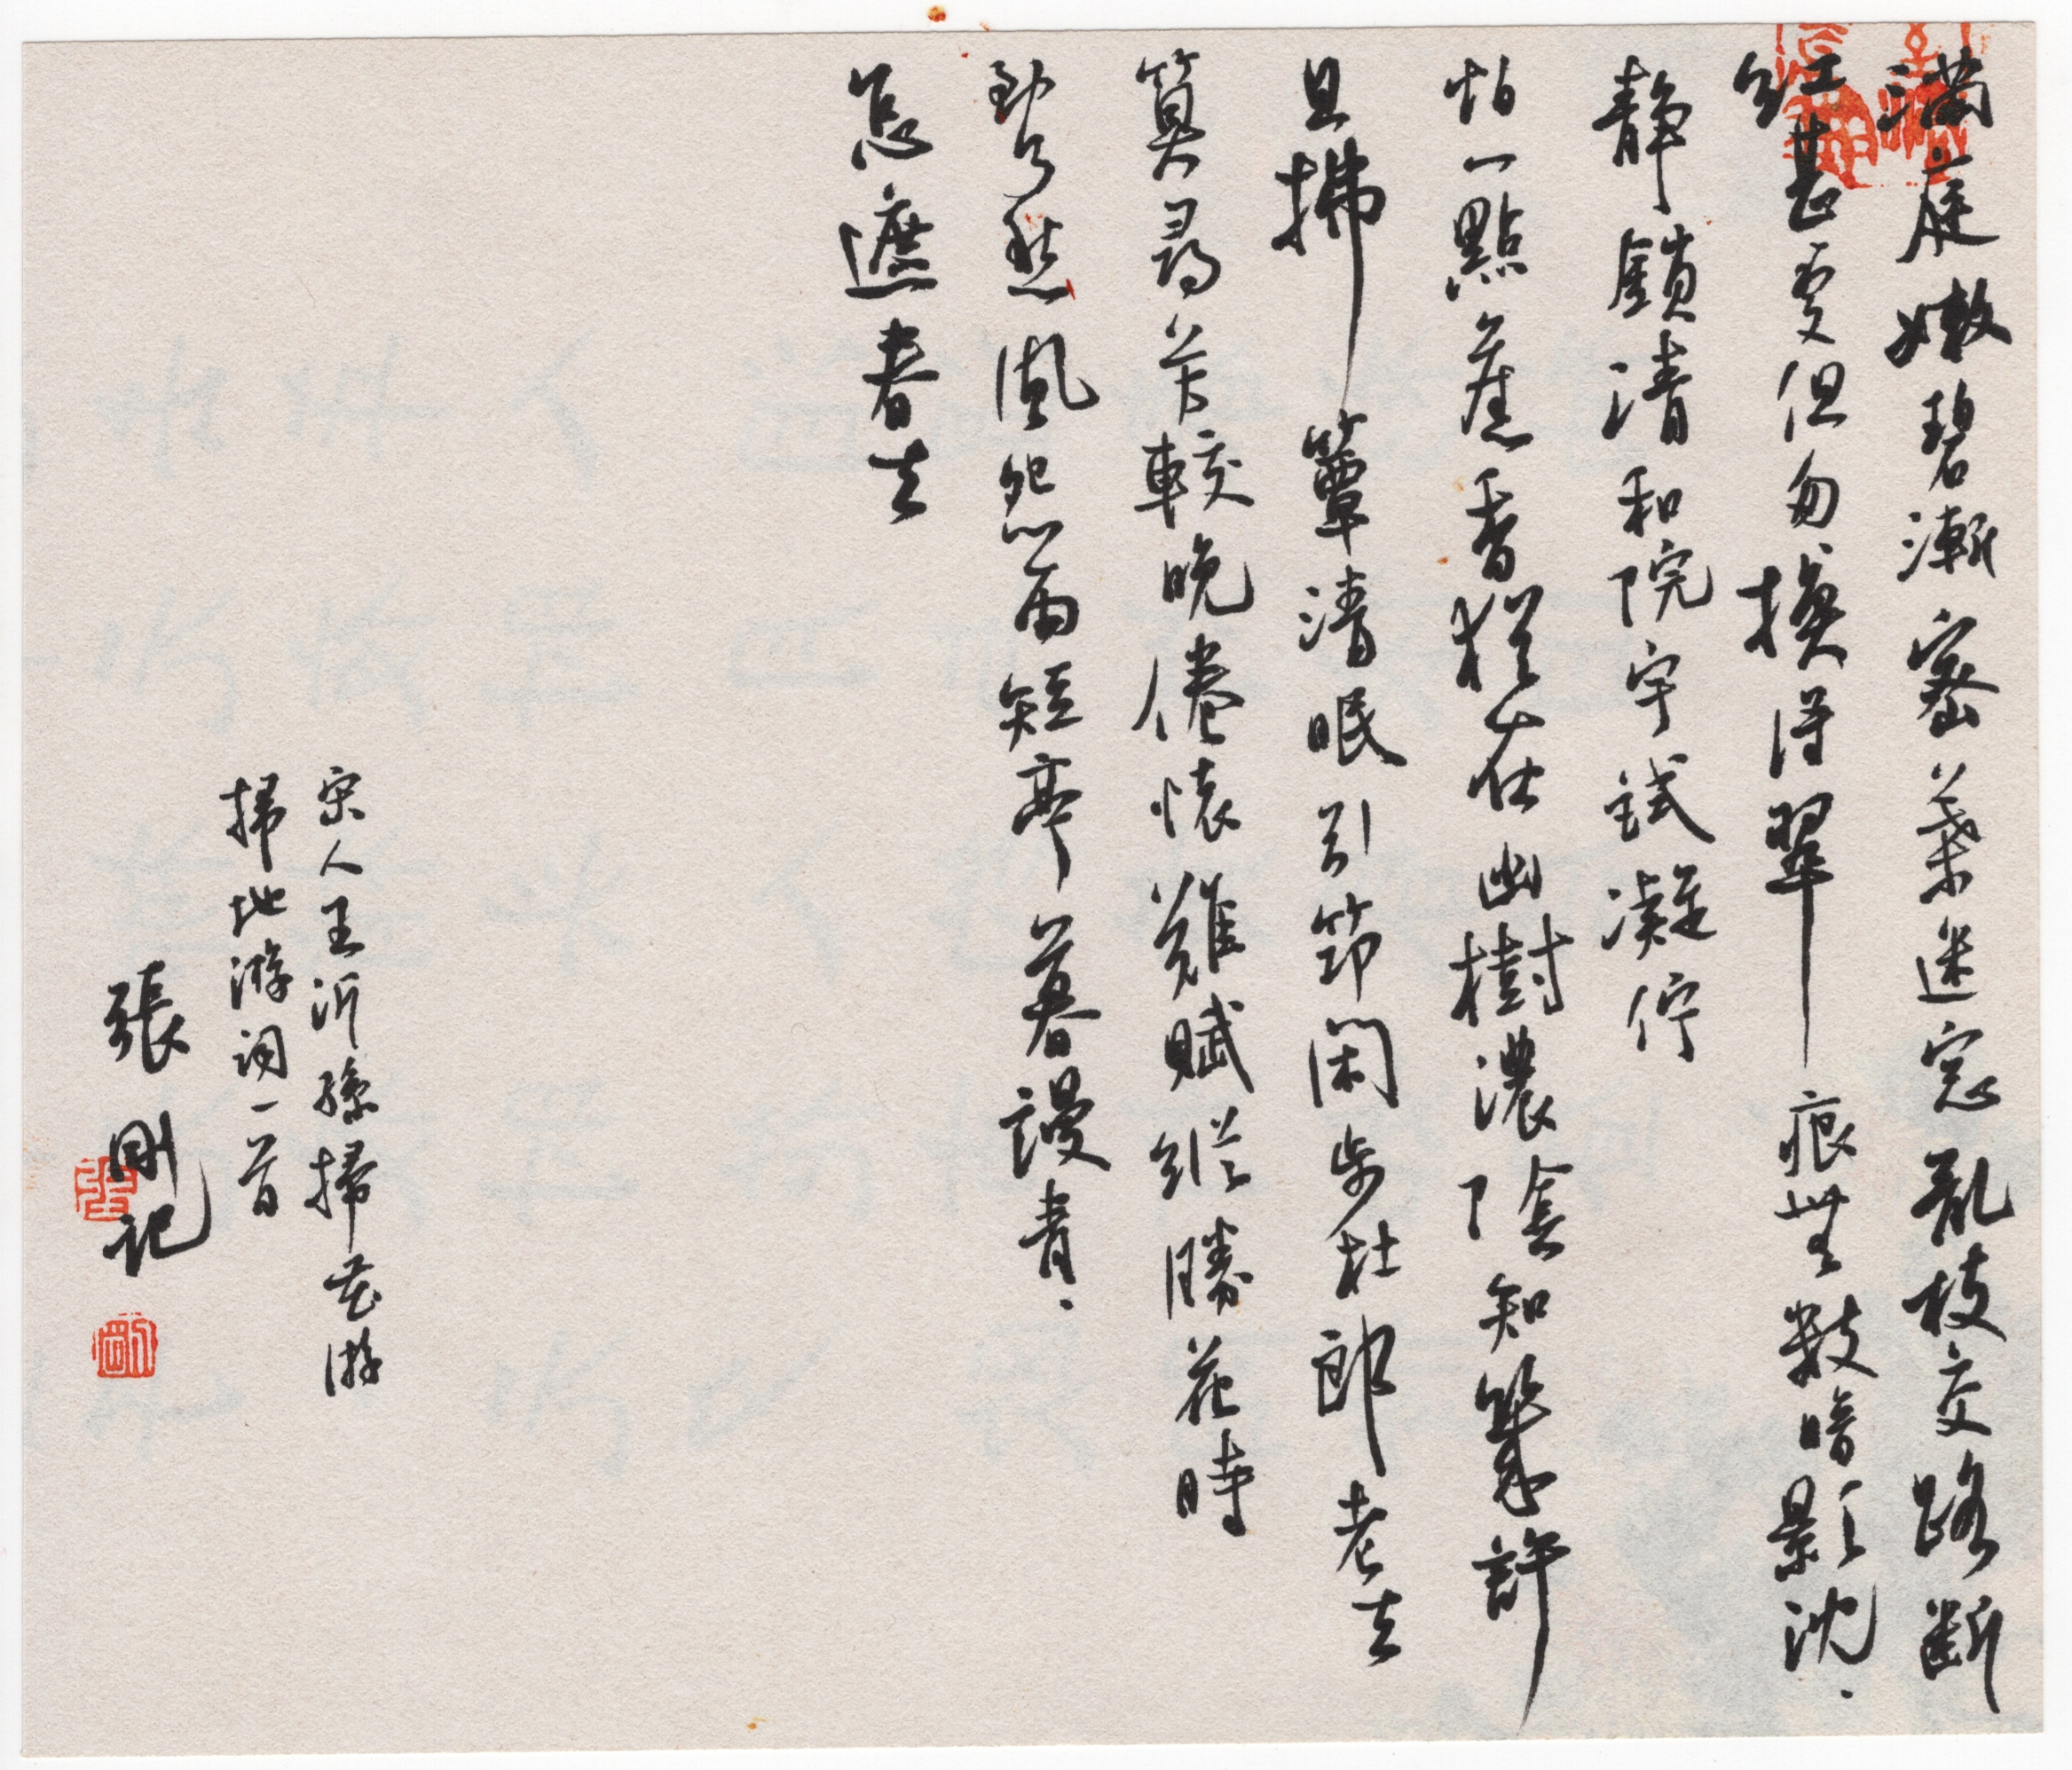 滿庭嫩碧漸密葉迷窓亂枝交路斷
紅甚處但匆、換得翠痕無數暗影沈、
静鎖清和院宇試凝佇
怕一點舊香猶在幽樹濃陰知幾許
且拂簟清眠引筇閑步杜郎老去
算尋芳較晚倦懷難賦縱勝花時
到了愁風怨雨短亭暮謾青、
怎遮春去
宋人王沂孫掃花游
掃地游詞一首
張剛記